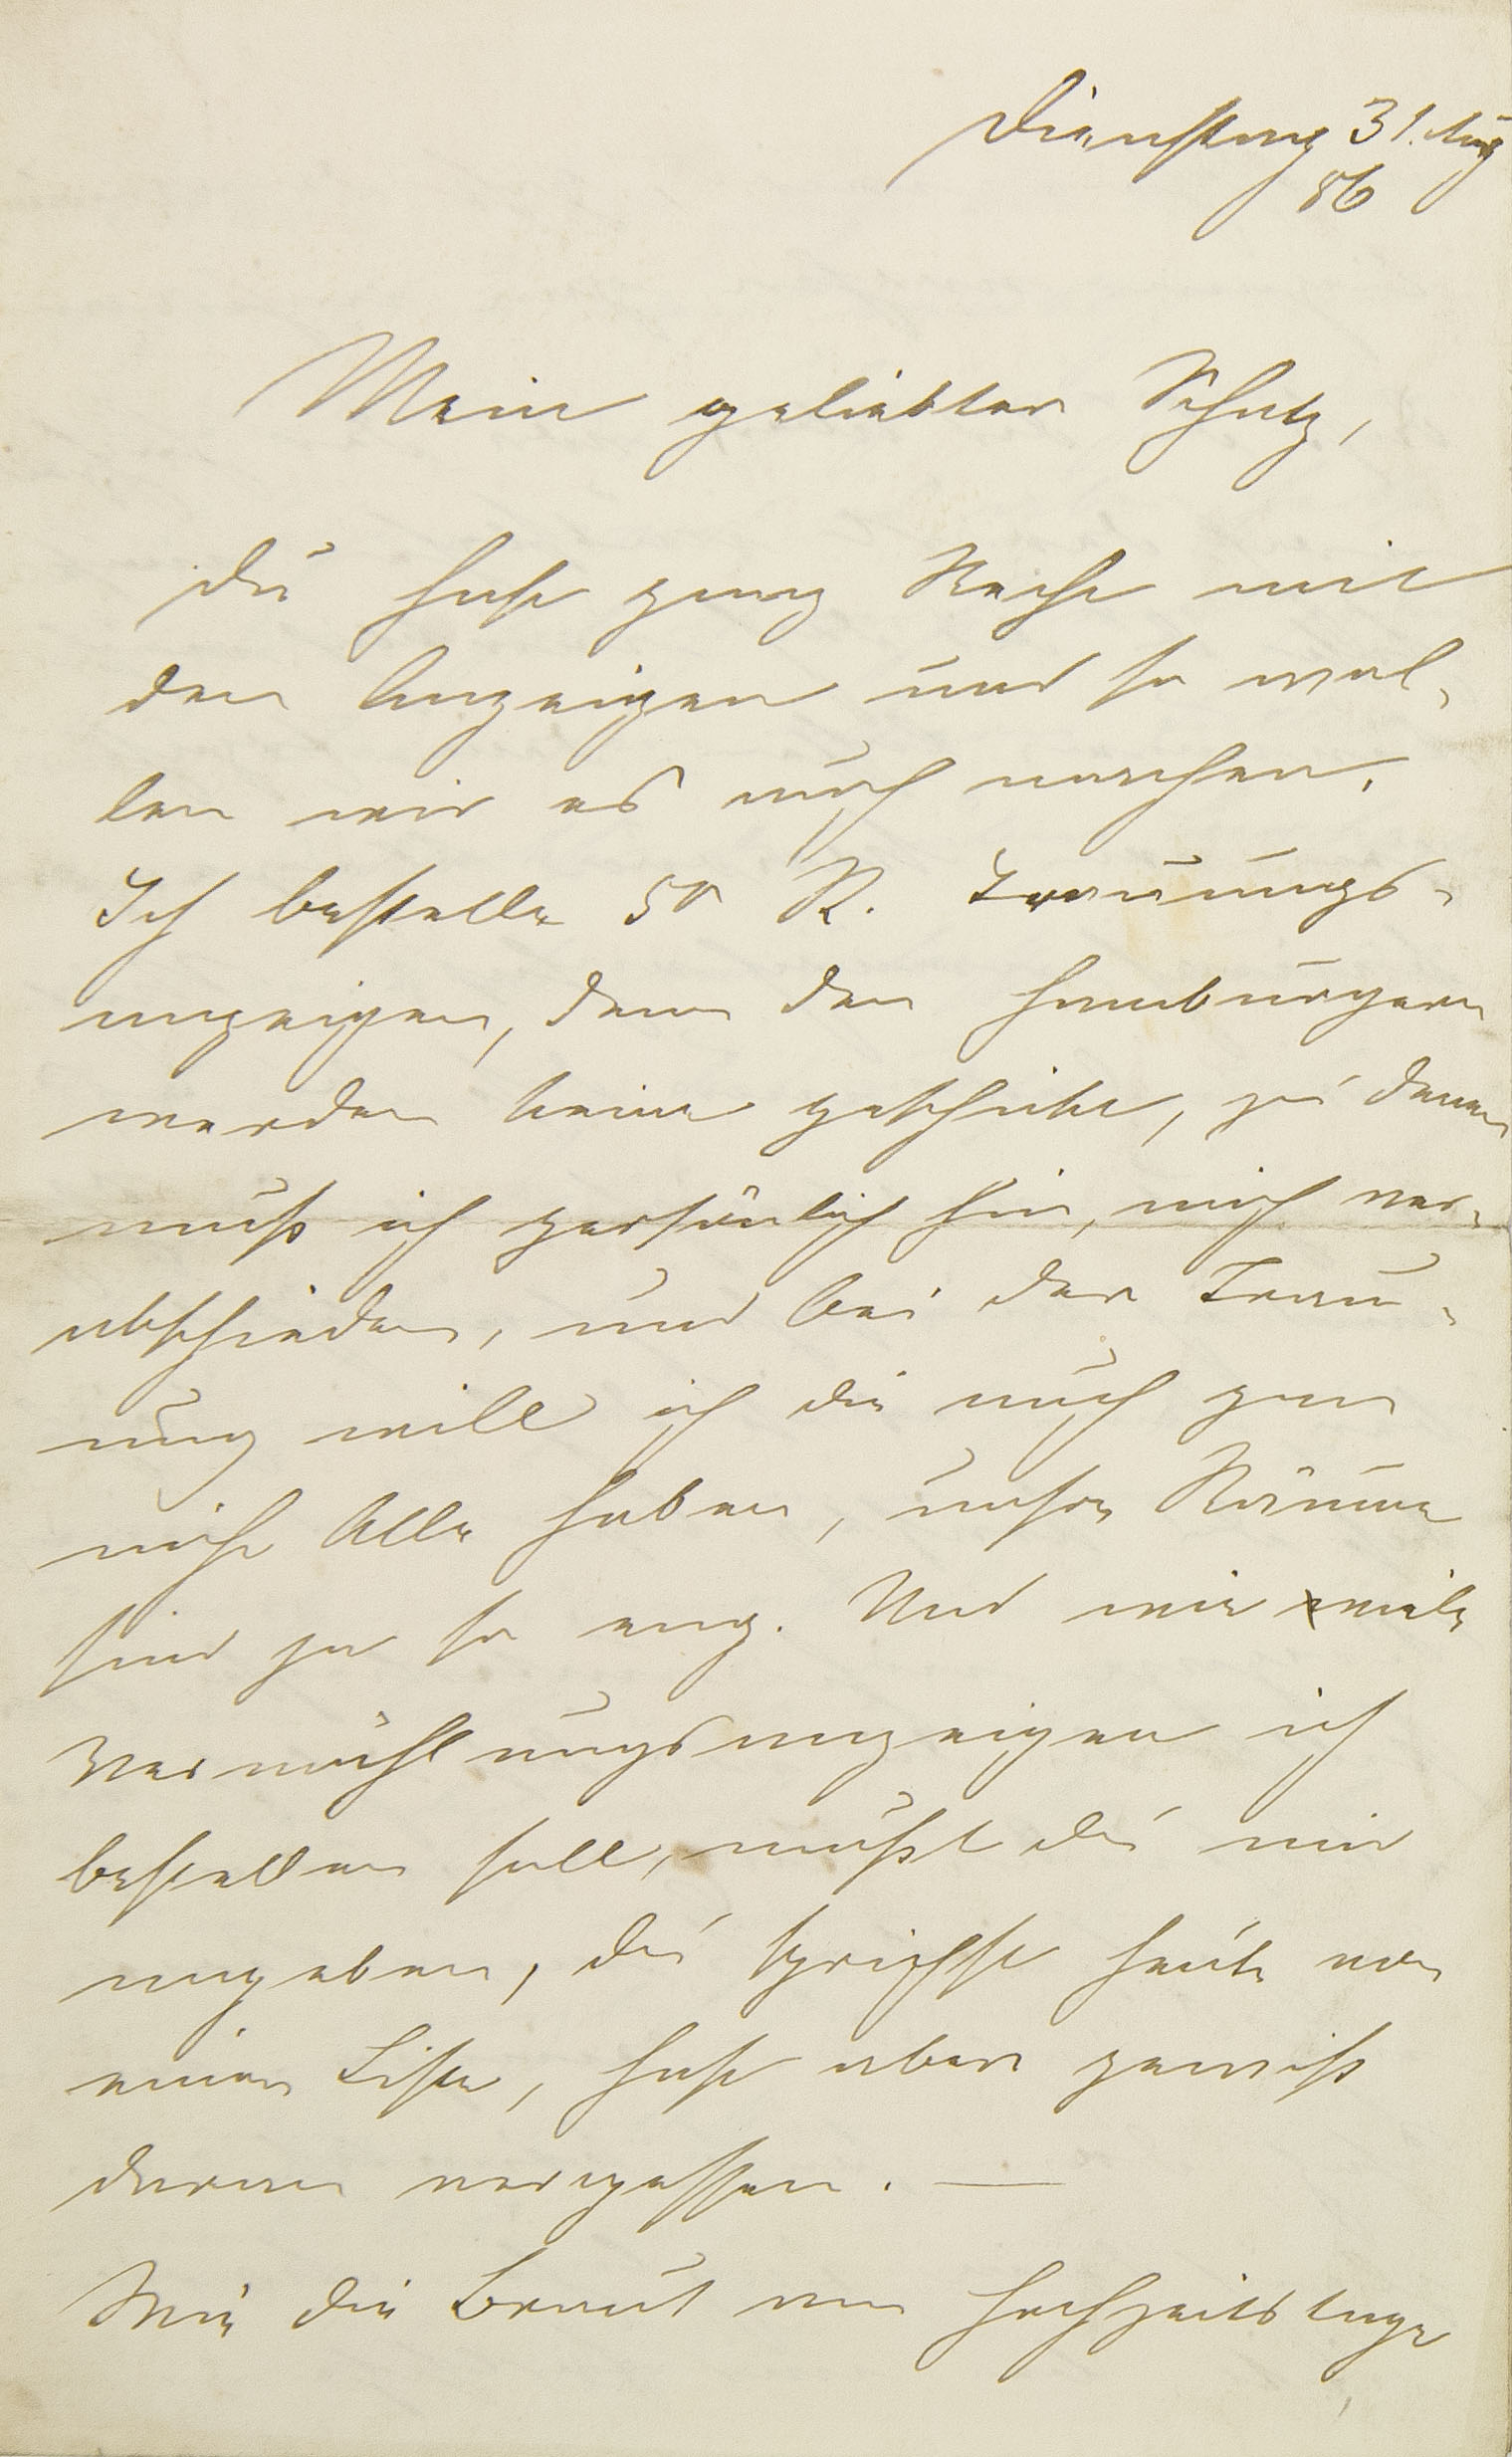 Dienstag 31. Aug
86
Mein geliebter Schatz,
Du hast ganz Recht mit
den Anzeigen und so wol-
len wir es auch machen.
Ich bestelle 50 St. Trauungs-
anzeigen, denn den Hamburgern
werden keine geschickt, zu denen
muß ich persönlich hin, mich ver-
abschieden, und bei der Trau-
ung will ich die auch gar
nicht Alle haben, unsre Räume
sind ja so eng. Und wie viele
Vermählungsanzeigen ich
bestellen soll, mußt Du mir
angeben, Du sprichst heute von
einer Liste, hast aber gewiß
daran vergessen. —
Wie die Braut am Hochzeitstage